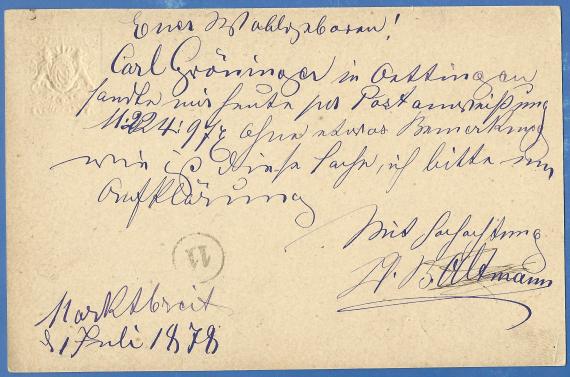 Euer Wohlgeboren!
Carl Gröninger in Oettingen
sandte mir heute per Postanweisung
M. 224.97 ohne etwas Bemerkung
wie ist diese Sache, ich bitte um
Aufklärung
Mit Hochachtung
Altmann
11
Marktbreit
d 1 Juli 1878